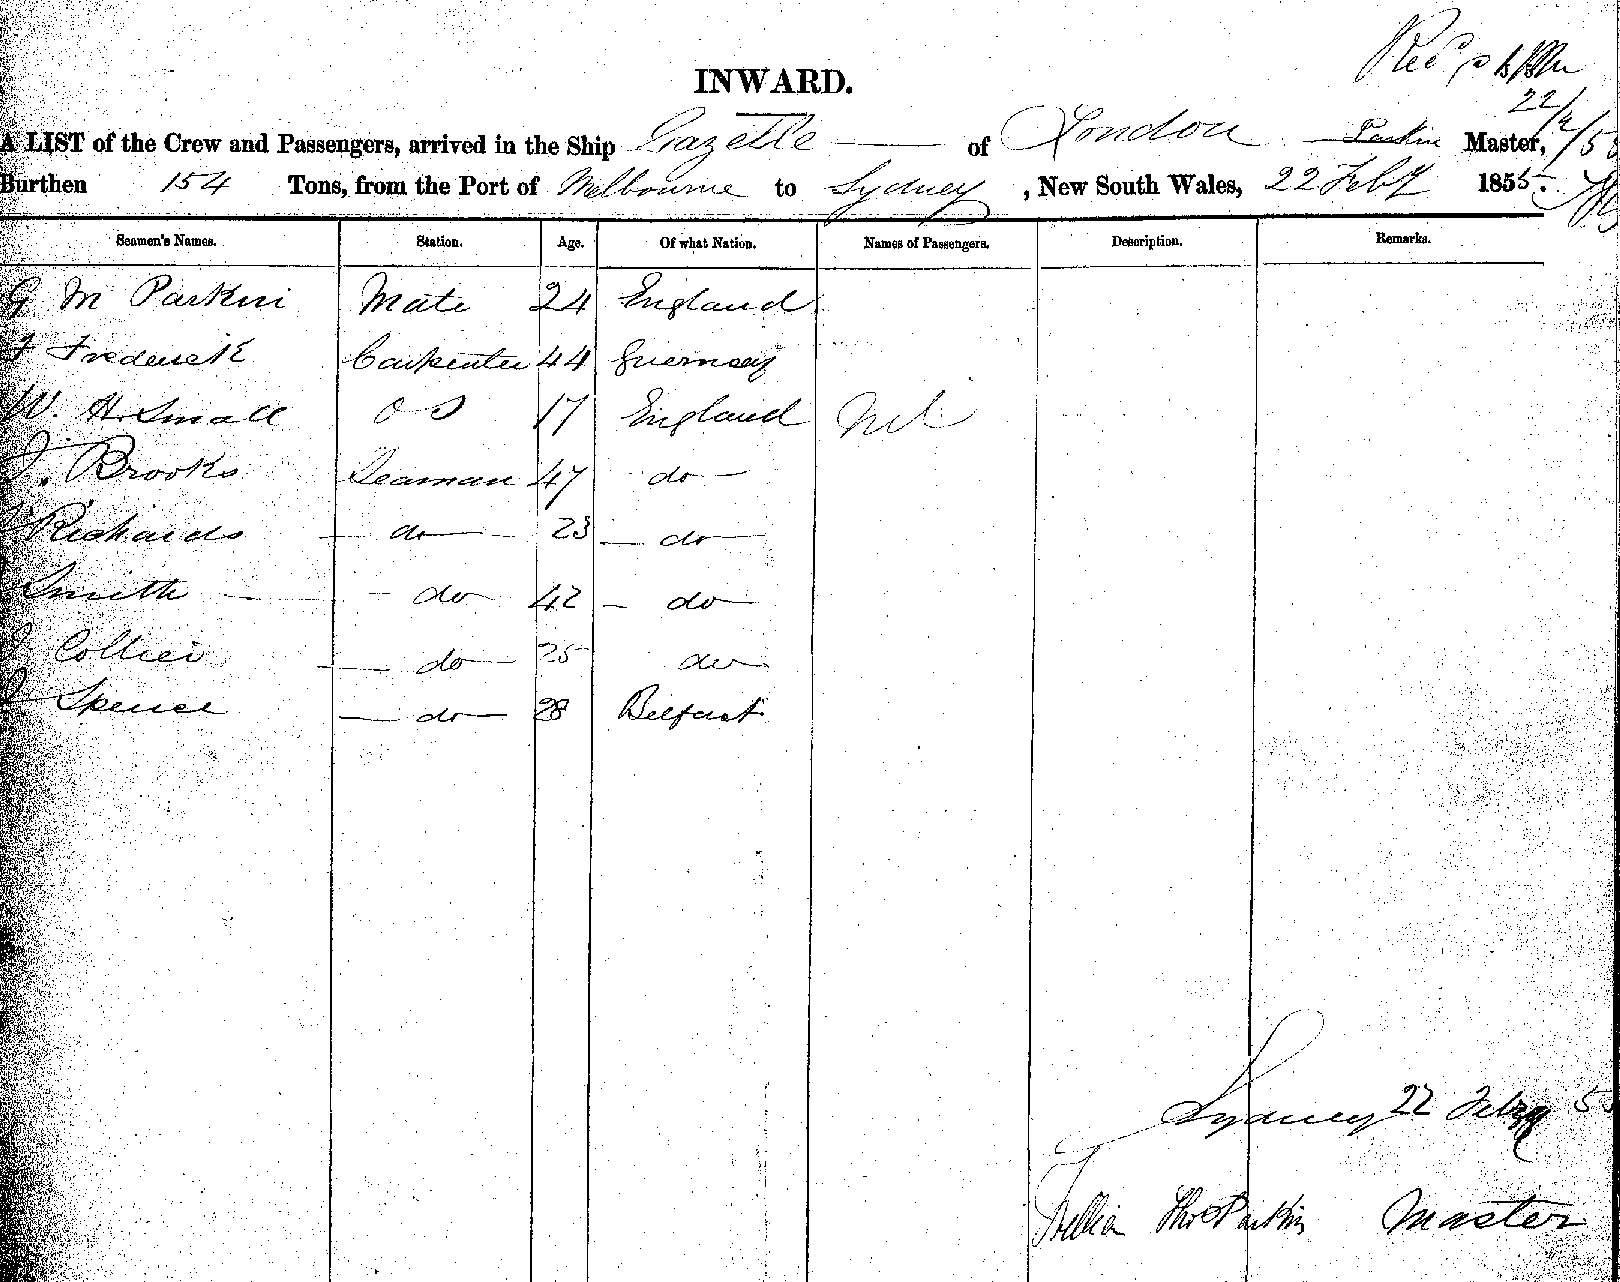 INWARD.
22/2/55
A LIST of the Crew and Passengers, arrived in the Ship Gazelle of London Parkin Master,
Burthen 154 Tons, from the Port of Melbourne to Sydney, New South Wales, 22 Feby 1855.
Seamen's Names. Station. Age. Of what Nation. Names of Passengers. Description. Remarks.
G M Parkin Mate 24 England
F Frederick Carpenter 44 Guernsey
W. H. Small O S 17 England Nil
J. Brooks Seaman 47 do
Richards do 23 do
Smith do 42 do
J Collier do 25 do
J Spence do 28 Belfast
Sydney 22 Feby 55
William Thos Parkin Master